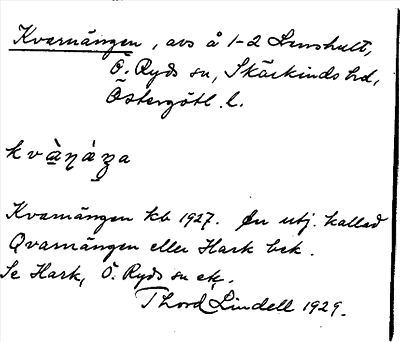 Kvarnängen, avs å 1-2 Lenshult,
Ö. Ryds sn, Skärkinds hd,
Östergötl. l.
kvà̱ŋáŋa
Kvarnängen kb 1927. En utj. kallad
Qvarnängen eller Hark bek.
Se Hark, Ö. Ryds sn etc.
Thord Lindell 1929.